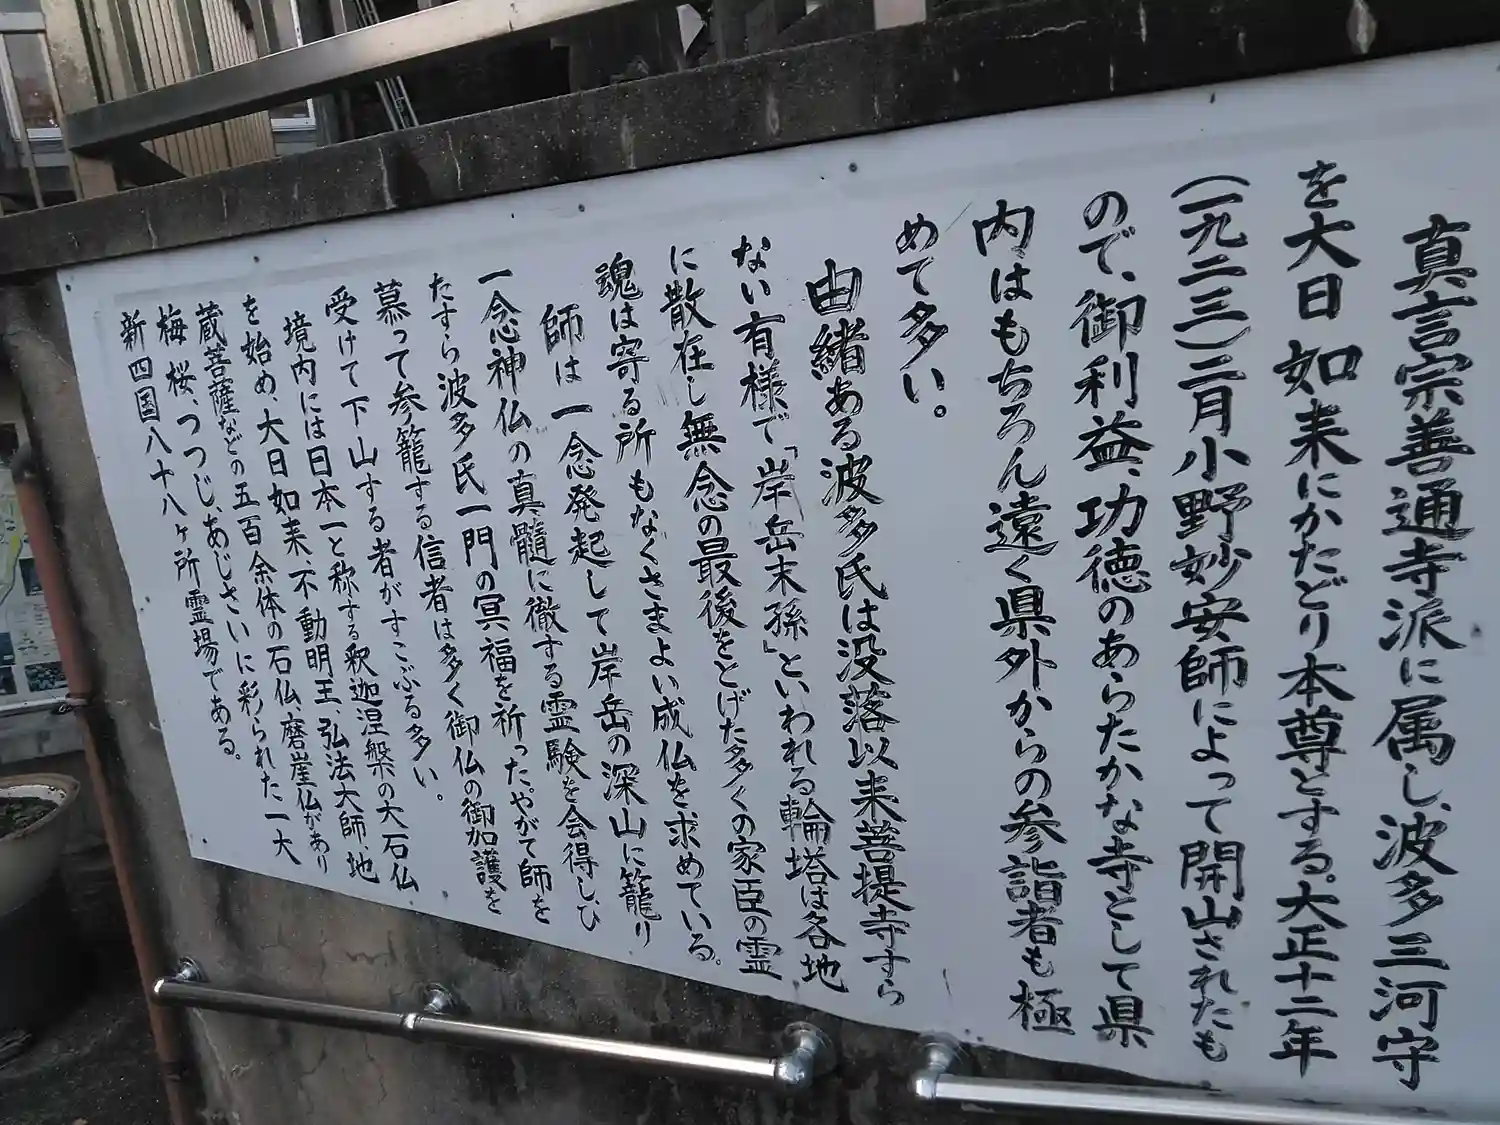 真言宗善通寺派に属し、波多三河守
を大日如来にかたどり本尊とする。大正十二年
(一九二三)二月小野妙安師によって開山されたも
ので、御利益、功徳のあらたかな寺として県
内はもちろん遠く県外からの参詣者も極
めて多い。
由緒ある波多氏は没落以来菩提寺すら
ない有様で「岸岳末孫」といわれる輪塔は各地
に散在し無念の最後をとげた多くの家臣の霊
魂は寄る所もなくさまよい成仏を求めている。
師は一念発起して岸岳の深山に籠り
一念神仏の真髄に徹する霊験を会得しひ
たすら波多氏一門の冥福を祈った。やがて師を
慕って参籠する信者は多く御仏の御加護を
受けて下山する者がすこぶる多い。
境内には日本一と称する釈迦涅槃の大石仏
を始め、大日如来、不動明王、弘法大師、地
蔵菩薩などの五百余体の石仏、磨崖仏があり
梅、桜、つつじ、あじさいに彩られた一大
新四国八十八ヶ所霊場である。